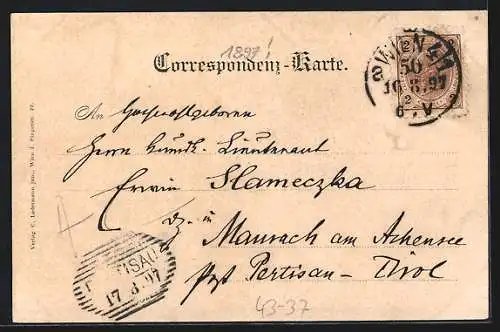 1897!
Correspondenz-Karte.
WIEN 4/1
50
16 8 97
6 V
An Hochwohlgeboren
Herrn Lieutenant
Erwin Slameczka
dz. in
Maurach am Achensee
Post Pertisau – Tirol
17 8 97
43-37
Verlag C. Ledermann jun., Wien I. Fleischm